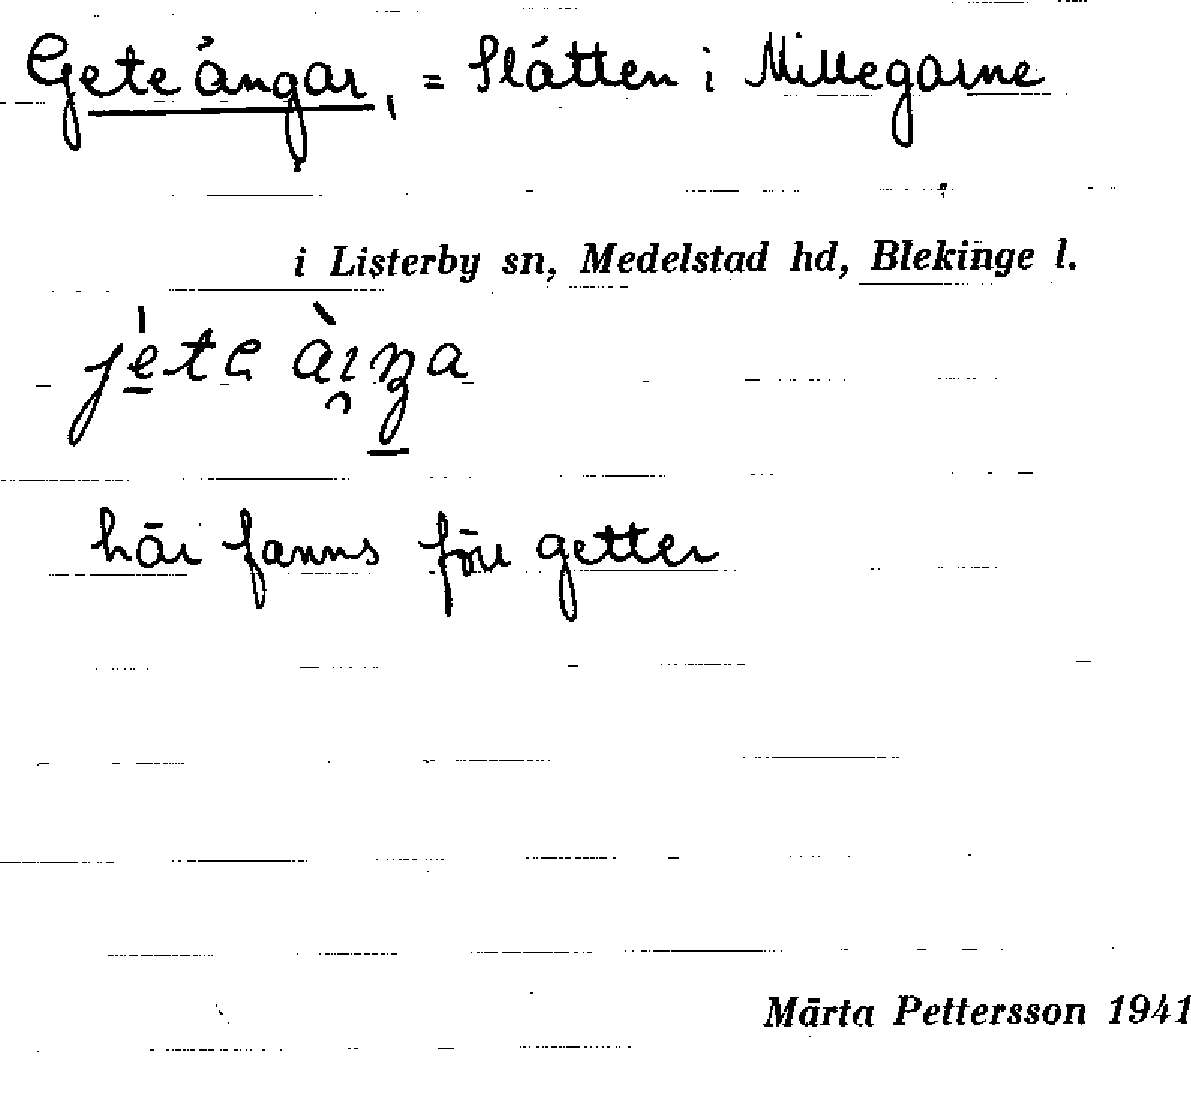 Geteängar, = Slätten i Millegarne
i Listerby sn, Medelstad hd, Blekinge l.
här fanns förr getter
Märta Pettersson 1941